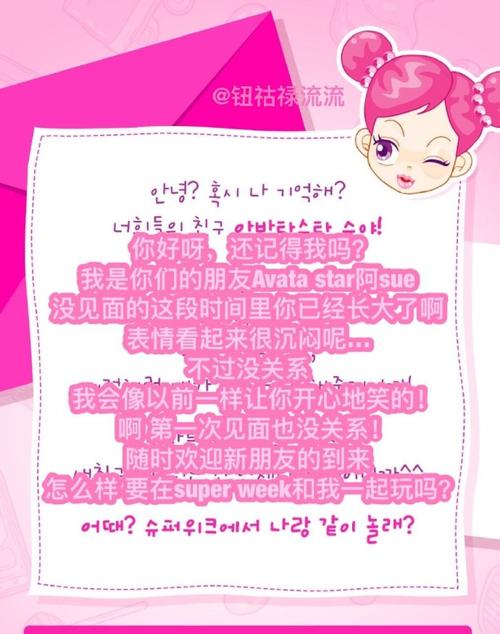 @钮祜禄流流
안녕? 혹시 나 기억해?
너희들의 친구 아바타스타 슈야!
你好呀，还记得我吗？
我是你们的朋友Avata star阿sue
没见面的这段时间里你已经长大了啊
表情看起来很沉闷呢...
不过没关系
我会像以前一样让你开心地笑的！
啊 第一次见面也没关系！
随时欢迎新朋友的到来
^^
怎么样 要在super week和我一起玩吗？
어때? 슈퍼위크에서 나랑 같이 놀래?